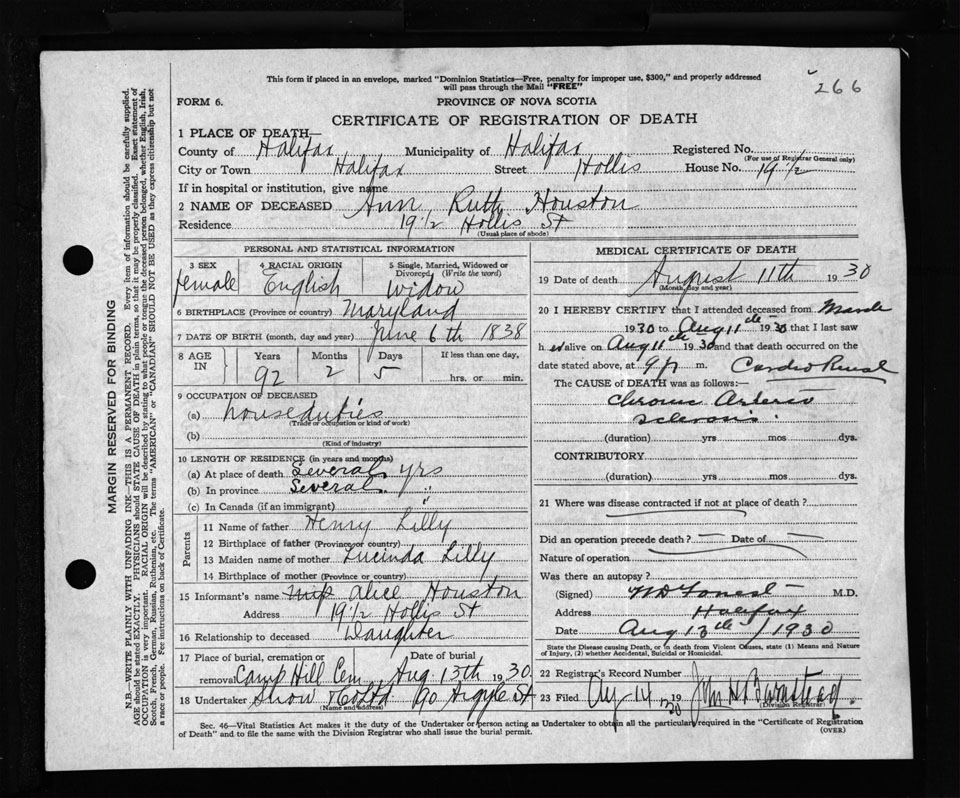 This form if placed in an envelope, marked "Dominion Statistics—Free, penalty for improper use, $300," and properly addressed
will pass through the Mail "FREE"
266
FORM 6.
PROVINCE OF NOVA SCOTIA
CERTIFICATE OF REGISTRATION OF DEATH
1 PLACE OF DEATH—
County of Halifax Municipality of Halifax Registered No.
(For use of Registrar General only)
City or Town Halifax Street Hollis House No. 19 1/2
If in hospital or institution, give name
2 NAME OF DECEASED Ann Ruth Houston
Residence 19 1/2 Hollis St
(Usual place of abode)
PERSONAL AND STATISTICAL INFORMATION
3 SEX 4 RACIAL ORIGIN 5 Single, Married, Widowed or Divorced (Write the word)
female English Widow
6 BIRTHPLACE (Province or country) Maryland
7 DATE OF BIRTH (month, day and year) June 6th 1838
8 AGE IN Years Months Days If less than one day,
92 2 5 hrs. or min.
9 OCCUPATION OF DECEASED
(a) houseduties
(Trade or occupation or kind of work)
(b)
(Kind of industry)
10 LENGTH OF RESIDENCE (in years and months)
(a) At place of death Several yrs
(b) In province Several "
(c) In Canada (if an immigrant) "
Parents
11 Name of father Henry Lilly
12 Birthplace of father (Province or country)
13 Maiden name of mother Lucinda Lilly
14 Birthplace of mother (Province or country)
15 Informant's name Alice Houston
Address 19 1/2 Hollis St
16 Relationship to deceased Daughter
17 Place of burial, cremation or removal Camp Hill Cem Date of burial Aug 13th 1930
18 Undertaker Snow & Co Ltd 90 Argyle St
(Name and address)
MEDICAL CERTIFICATE OF DEATH
19 Date of death August 11th 1930
(Month, day and year)
20 I HEREBY CERTIFY that I attended deceased from March
1930 to Aug 11th 1930 that I last saw
her alive on Aug 11th 1930 and that death occurred on the
date stated above, at 9 p m. Cardio Renal
The CAUSE OF DEATH was as follows:—
Chronic Arterio
sclerosis
(duration) yrs mos dys.
CONTRIBUTORY
(duration) yrs mos dys.
21 Where was disease contracted if not at place of death?
Did an operation precede death? — Date of —
Nature of operation
Was there an autopsy?
(Signed) M.D.
Address Halifax
Date Aug 13th / 1930
State the Disease causing Death, or in death from Violent Causes, state (1) Means and Nature
of Injury, (2) whether Accidental, Suicidal or Homicidal.
22 Registrar's Record Number
23 Filed Aug 14 1930 John H Barnstead
(Division Registrar)
Sec. 46—Vital Statistics Act makes it the duty of the Undertaker or person acting as Undertaker to obtain all the particulars required in the "Certificate of Registration
of Death" and to file the same with the Division Registrar who shall issue the burial permit.
(OVER)
MARGIN RESERVED FOR BINDING
N.B.—WRITE PLAINLY WITH UNFADING INK—THIS IS A PERMANENT RECORD. Every item of information should be carefully supplied.
AGE should be stated EXACTLY. PHYSICIANS should STATE CAUSE OF DEATH in plain terms, so that it may be properly classified. Exact statement of
OCCUPATION is very important. RACIAL ORIGIN will be described by stating to what people or tongue the deceased person belonged, whether English, Irish,
Scotch, French, German, Russian, Ruthenian, etc. The terms "AMERICAN" or "CANADIAN" SHOULD NOT BE USED as they express citizenship but not
a race or people. Fee instructions on back of Certificate.